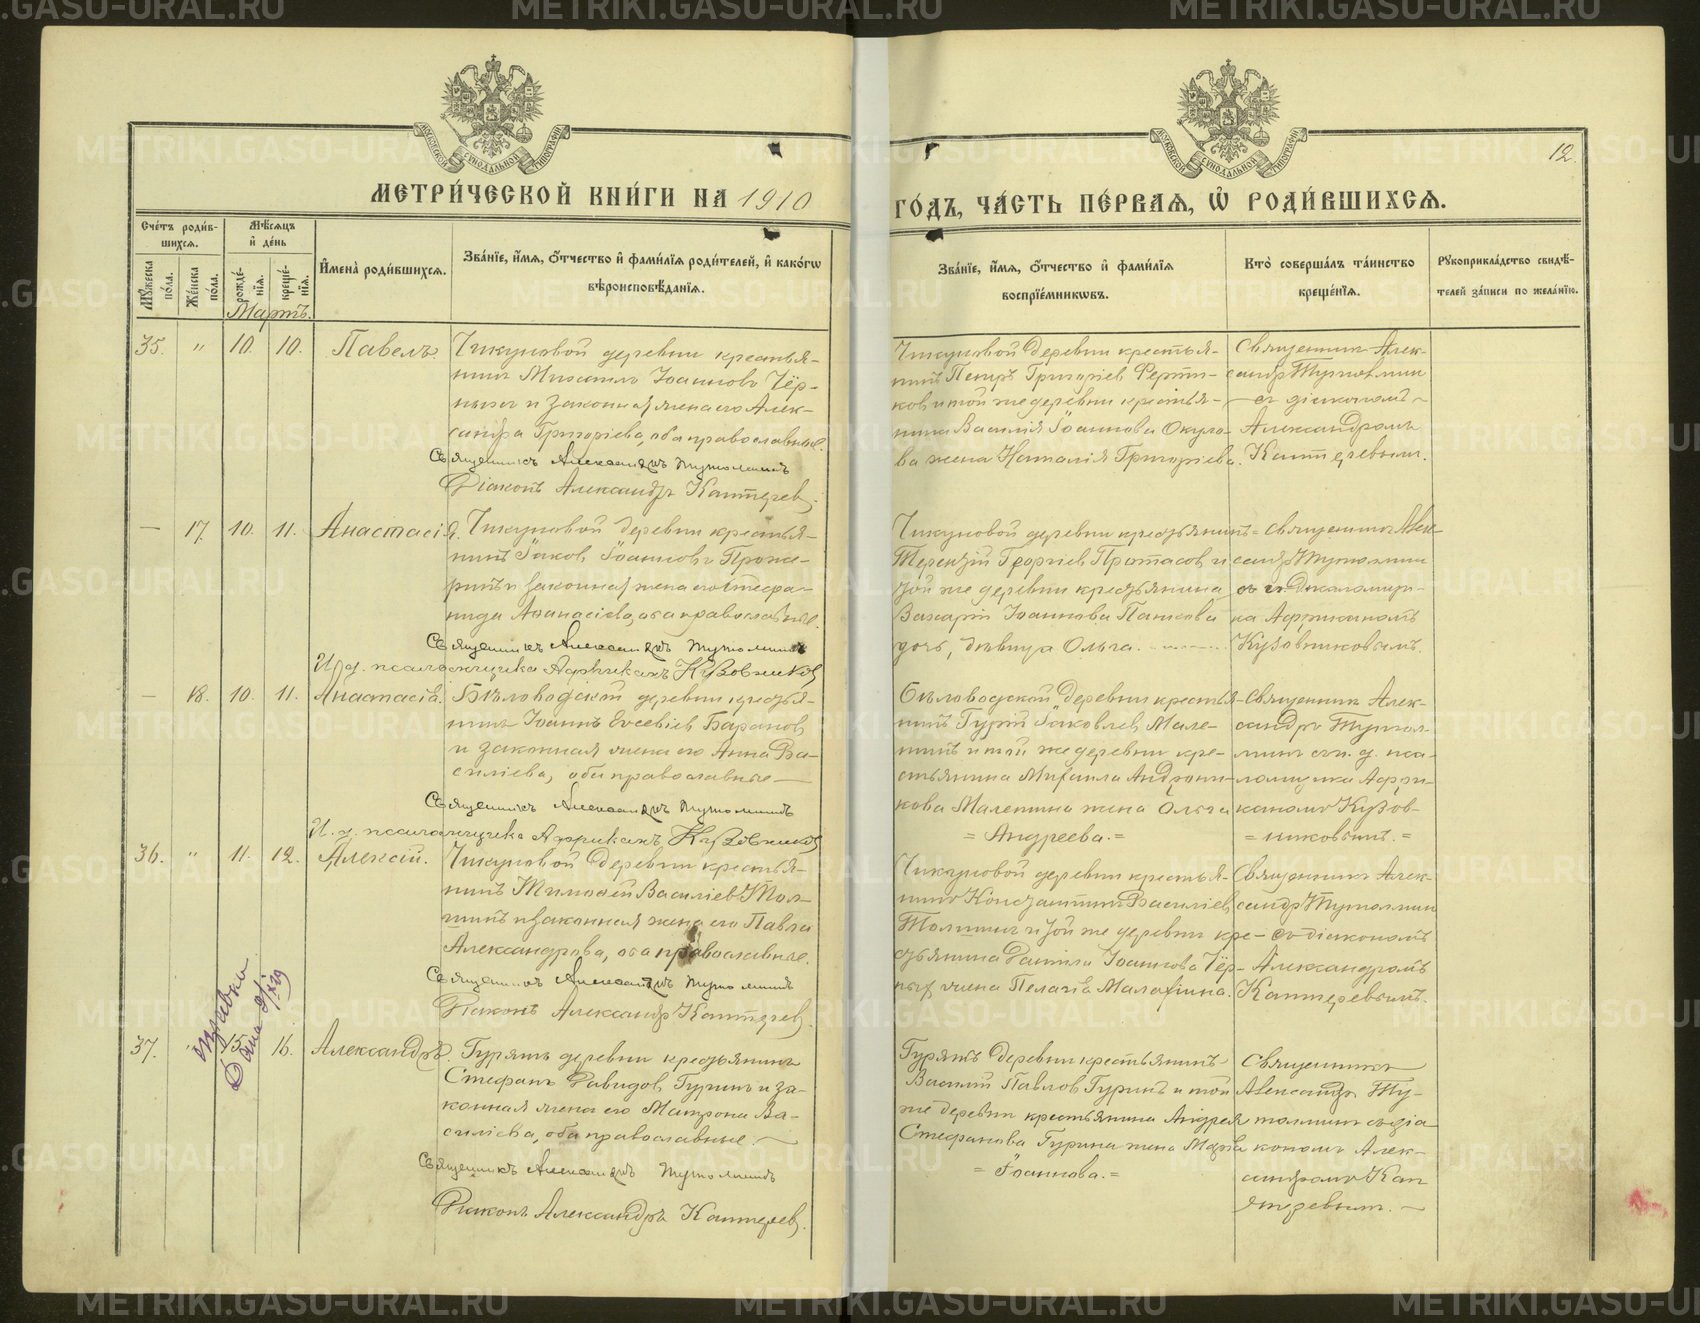 МЕТРИ́ЧЕСКОЙ КНИ́ГИ НА 1910
ГО́ДЪ, ЧА́СТЬ ПЕ́РВАѦ, Ѡ҆ РОДИ́ВШИХСѦ.
12.
Сче́тъ роди́в-
шихсѧ.
Мꙋ́жеска
по́ла.
Же́нска
по́ла.
Мѣ́сѧцъ
и҆ де́нь
рожде́-
нїѧ.
креще́-
нїѧ.
И҆мена̀ роди́вшихсѧ.
Зва́нїе, и҆́мѧ, ѻ҆́тчество и҆ фами́лїѧ роди́телей, и҆ како́гѡ
вѣроисповѣ́данїѧ.
Зва́нїе, и҆́мѧ, ѻ҆́тчество и҆ фами́лїѧ
воспрїе́мникѡвъ.
Кто̀ соверша́лъ та́инство
креще́нїѧ.
Рꙋкоприкла́дство свидѣ́-
телей за́писи по жела́нїю.
Мартъ.
35. " 10. 10. Павелъ.
Чикуновой деревни крестья-
нинъ Михаилъ Іоанновъ Чёр-
ныхъ и законная жена его Алек-
сандра Григоріева, оба православные.
Священникъ Александръ Тутолминъ
Діаконъ Александръ Каптеревъ.
Чикуновой деревни крестья-
нинъ Петръ Григоріев
ковъ и той же деревни крестья-
нина Василія Іоаннова Окуло-
ва жена Наталія Григоріева.
Священникъ Алек-
сандръ Тутолмин
съ діакономъ
Александромъ
Каптеревымъ.
— 17. 10. 11. Анастасія.
Чикуновой деревни крестья-
нинъ Іаков Іоанновъ
и законная жена его Стефа-
нида Аѳанасіева, оба православные.
Священникъ Александръ Тутолминъ
И. д. псаломщика Африканъ Кузовников
Чикуновой деревни крестьянинъ
Терентій Георгіев Протасов и
той же деревни крестьянина
Захарія Іоаннова Панкова
дочь, дѣвица Ольга.
Священникъ Алек-
сандръ Тутолмин
съ и. д. псаломщи-
ка Африканомъ
Кузовниковымъ.
— 18. 10. 11. Анастасія.
Бѣловодской деревни крестья-
нинъ Іоаннъ Евсевіев Баранов
и законная жена его Анна Ва-
силіева, оба православные
Священникъ Александръ Тутолминъ
И. д. псаломщика Африканъ Кузовников
Бѣловодской деревни крестья-
нинъ Гурій Іаковлев Мале-
нинъ и той же деревни кре-
стьянина Михаила Андрони-
кова Маленина жена Ольга
= Андреева. =
Священник Алек-
сандръ Тутол-
мин съ и. д. пса-
ломщика Афри-
каномъ Кузов-
= никовымъ. =
36. " 11. 12. Алексій.
Чикуновой деревни крестья-
нинъ Тимоѳей Василіев Тол-
и законная жена его Павла
Александрова, оба православные.
Священникъ Александръ Тутолминъ
Діаконъ Александръ Каптерев.
Чикуновой деревни крестья-
нинъ Константин Василіев
и той же деревни кре-
стьянина Даніила Іоаннова Чёр-
ных жена Пелагія Малафіина.
Священник Алек-
сандръ Тутолмин
съ діакономъ
Александромъ
Каптеревымъ.
Справка
37. 15. 16. Александръ.
Гурятъ деревни крестьянинъ
Стефанъ Давидов Гуринъ и за-
конная жена его Матрона Ва-
силіева, оба православные.
Священникъ Александръ Тутолминъ
Діаконъ Александръ Каптерев.
Гурятъ деревни крестьянинъ
Василій Павлов Гуринъ и той
же деревни крестьянина Андрея
Стефанова Гурина жена Марѳа
= Іоаннова. =
Священникъ
Александръ Ту-
толмин съ діа-
кономъ Алек-
сандромъ Кап
теревымъ.